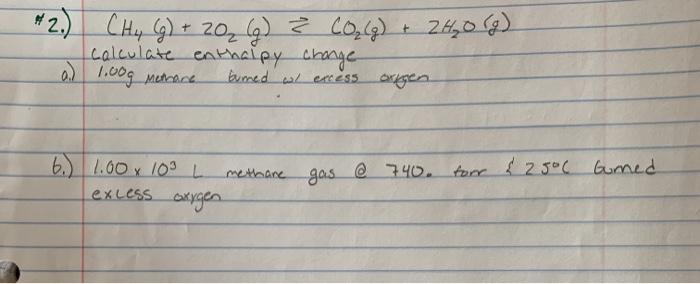 #2.) CH₄ (g) + 2O₂ (g) ⇄ CO₂(g) + 2H₂O (g)
Calculate enthalpy change
a.) 1.00g Methane burned w/ excess oxygen
b.) 1.00 x 10³ L methane gas @ 740. torr & 25°C burned
excess oxygen